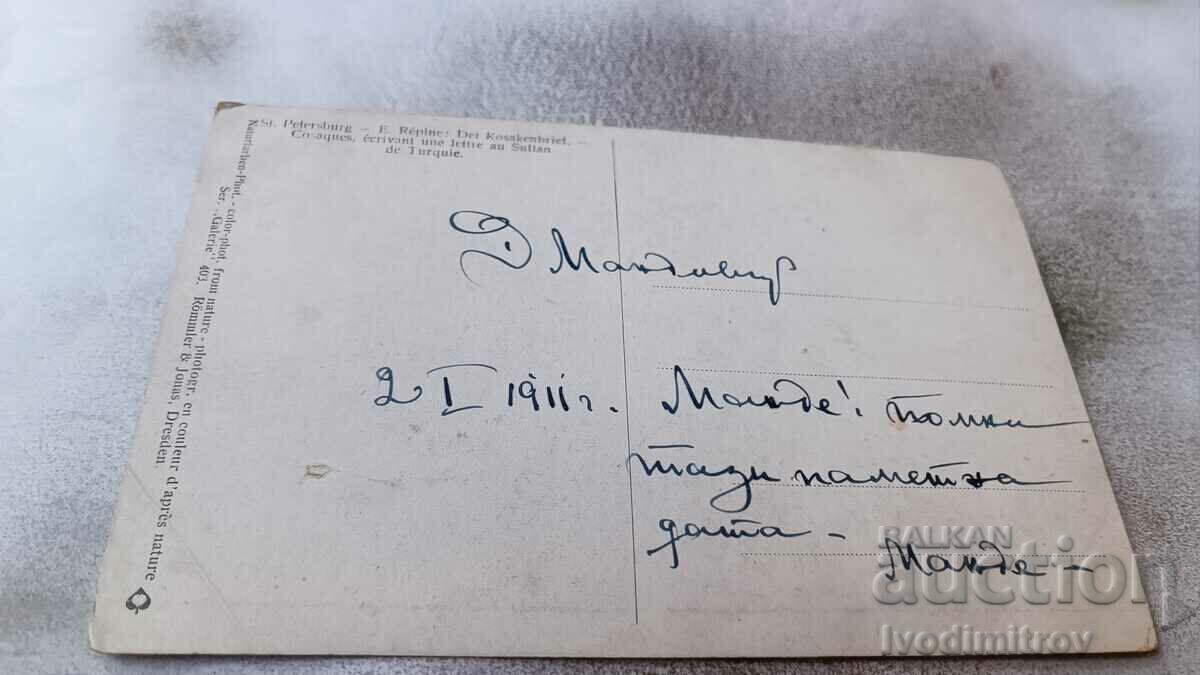 St. Petersburg – E. Répine: Der Kosakenbrief. –
Cosaques, écrivant une lettre au Sultan
de Turquie.
Naturfarben-Phot. - color-phot. from nature - photogr. en couleur d'après nature
Ser. „Galerie" 403. Römmler & Jonas, Dresden.
Д
2 I 1911 г.
Манде! помни
тази паметна
дата –
Манде –
BALKAN
auction
Ivodimitrov